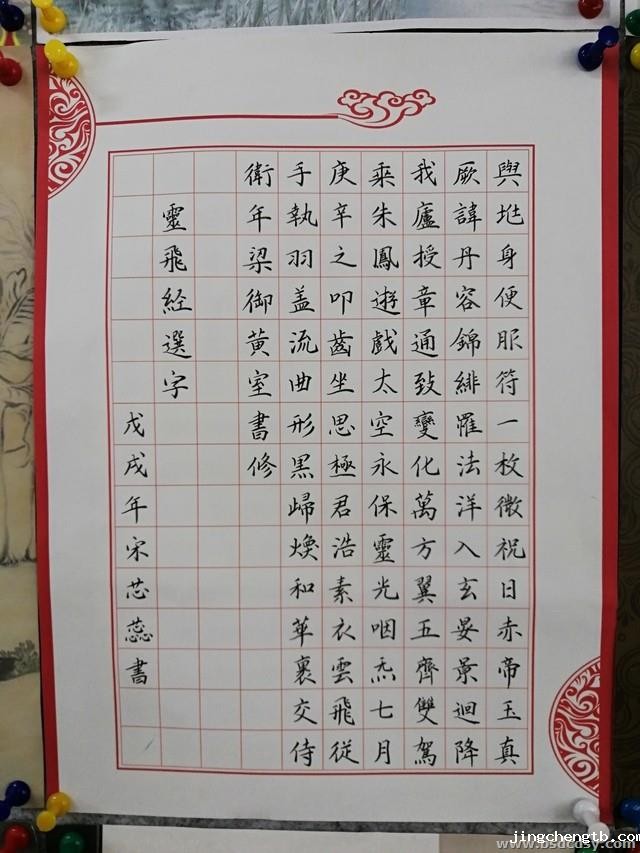 與身便服符一枚微祝日赤帝玉真
厥諱丹容錦緋羅法洋入玄晏景迴降
我廬授章通致變化萬方翼五齊雙駕
乘朱鳳遊戲太空永保靈光咽炁七月
庚辛之叩齒坐思極君浩素衣雲飛從
手執羽盖流曲形黑歸煥和華裏交侍
衛年梁御黃室書修
靈飛経選字
戊戌年宋芯蕊書
jingchengtb.com
www.bsdcdsy.com